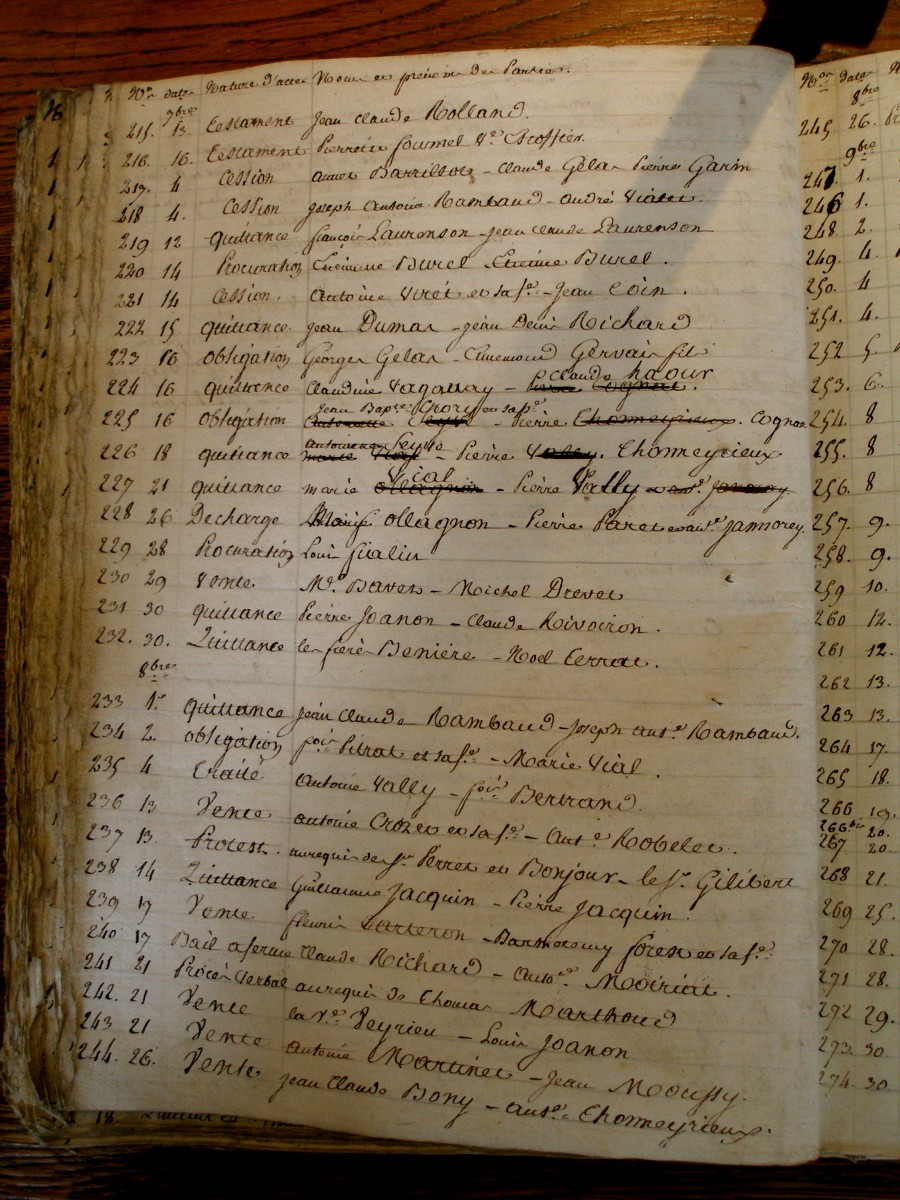 Nos dates Nature d'actes Noms et prénoms des Parties.
7bre
215. 13. testament Jean Claude Rolland.
216. 16. testament Pierrotte fournel Ve Escoffier.
217. 4 Cession Barrillot - Claude Gelas Pierre Garin
218 4. Cession Joseph Antoine Rambaud - andré Viallet.
219 12 quittance françois Laurenson - Jean Claude Laurenson
220 14 Procuration Etiennne Burel Etienne Burel.
221 14 Cession. Antoine Viret et sa fe - Jean Coin.
222 15 quittance Jean Dumas - Jean Denis Richard
223 16 obligation Georges Gelas - Ennemond Gervais fils
224 16 quittance Claudine Vaganay - Claude haour
Pierre Cognat.
225 16 obligation Jean Bapte Chory et sa fe - Pierre Thomeyrieux. Cognat
226 18 quittance Antoinette Peyte - Pierre Vally. Thomeyrieux
227 21 quittance marie Vial Ollagnon - Pierre Vally et aue Janmory
228 26 Decharge Marie ollagnon - Pierre Paret et aue Janmorey.
229 28 Procuration Louis fialin
230 29 Vente. Me Bavet - Michel Drevet
231 30 quittance Pierre Joanon - Claude Rivoiron.
232. 30. Quittance les freres Beniere - Noel Terrat.
8bre
233 1er quittance Jean Claude Rambaud - Joseph ante Rambaud.
234 2. obligation fois Pitrat et sa fe - Marie Vial.
235 4 traité Antoine Vally - fois Bertrand.
236 13 Vente Antoine Crozet et sa fe - Ante Robelet.
237 13. Protest. au requis de sr Perret et Bonjour - le Sr. Gilibert
238 14 Quittance Guillaume Jacquin - Pierre Jacquin.
239 17 Vente fleuri Carteron - Barthelemy forest et sa fe
240 17 Bail a ferme Claude Richard - Ante Moiriat.
241 21 Procès Verbal au requis de Thomas Marthoud
242. 21 Vente la Ve Veyrieu - Louis Joanon
243 21 Vente Antoine Martinet - Jean Moussy.
244. 26. Vente Jean Claude Bony - ante Thomeyrieux.
Nos dates
8bre
245. 26.
9bre
247 1.
246 1.
248. 2.
249. 4.
250. 4
251. 4.
252 5.
253. 6.
254. 8
255. 8
256. 8
257. 9.
258. 9.
259 10.
260 12.
261 12.
262 13.
263 13.
264 17.
265 18.
266 19.
266bis 20.
267 20.
268 21.
269 25.
270 28.
271 28.
272 29.
273. 30.
274. 30